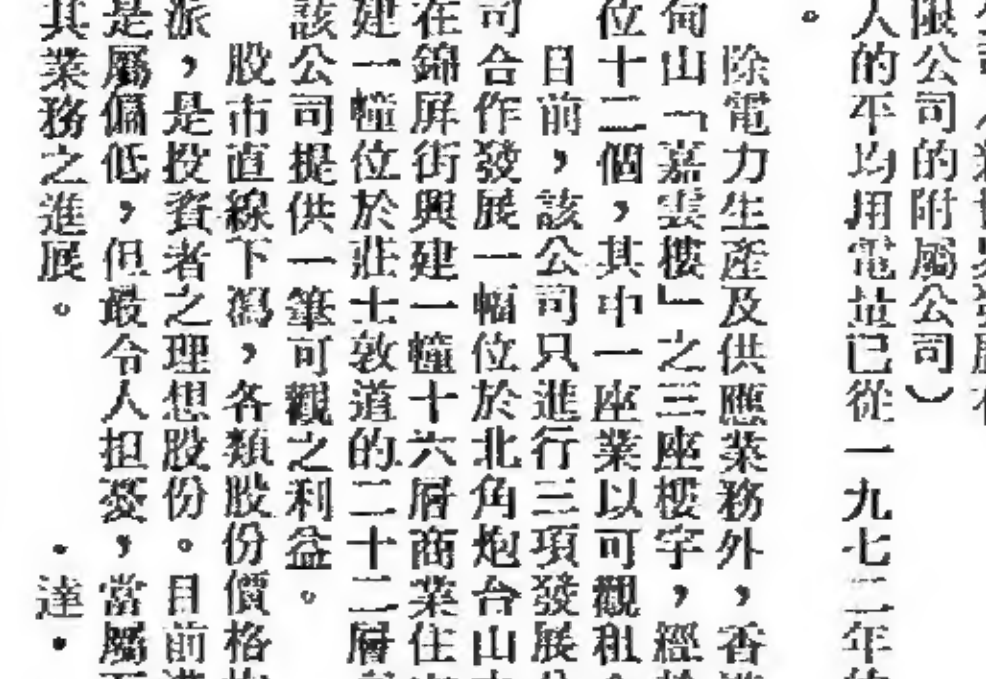 限公司的附屬公司）
人的平均用電量已從一九七二年的
。
除電力生產及供應業務外，香港
甸山「嘉雲樓」之三座樓宇，經
位十二個，其中一座業以可觀租
目前，該公司只進行三項發展
司合作發展一幅位於北角炮台山
在錦屏街興建一幢十六層商業住
建一幢位於莊士敦道的二十二層
該公司提供一筆可觀之利益。
股市直線下瀉，各類股份價格
派，是投資者之理想股份。目前
是屬偏低，但最令人担憂，當屬
其業務之進展。 ·達·